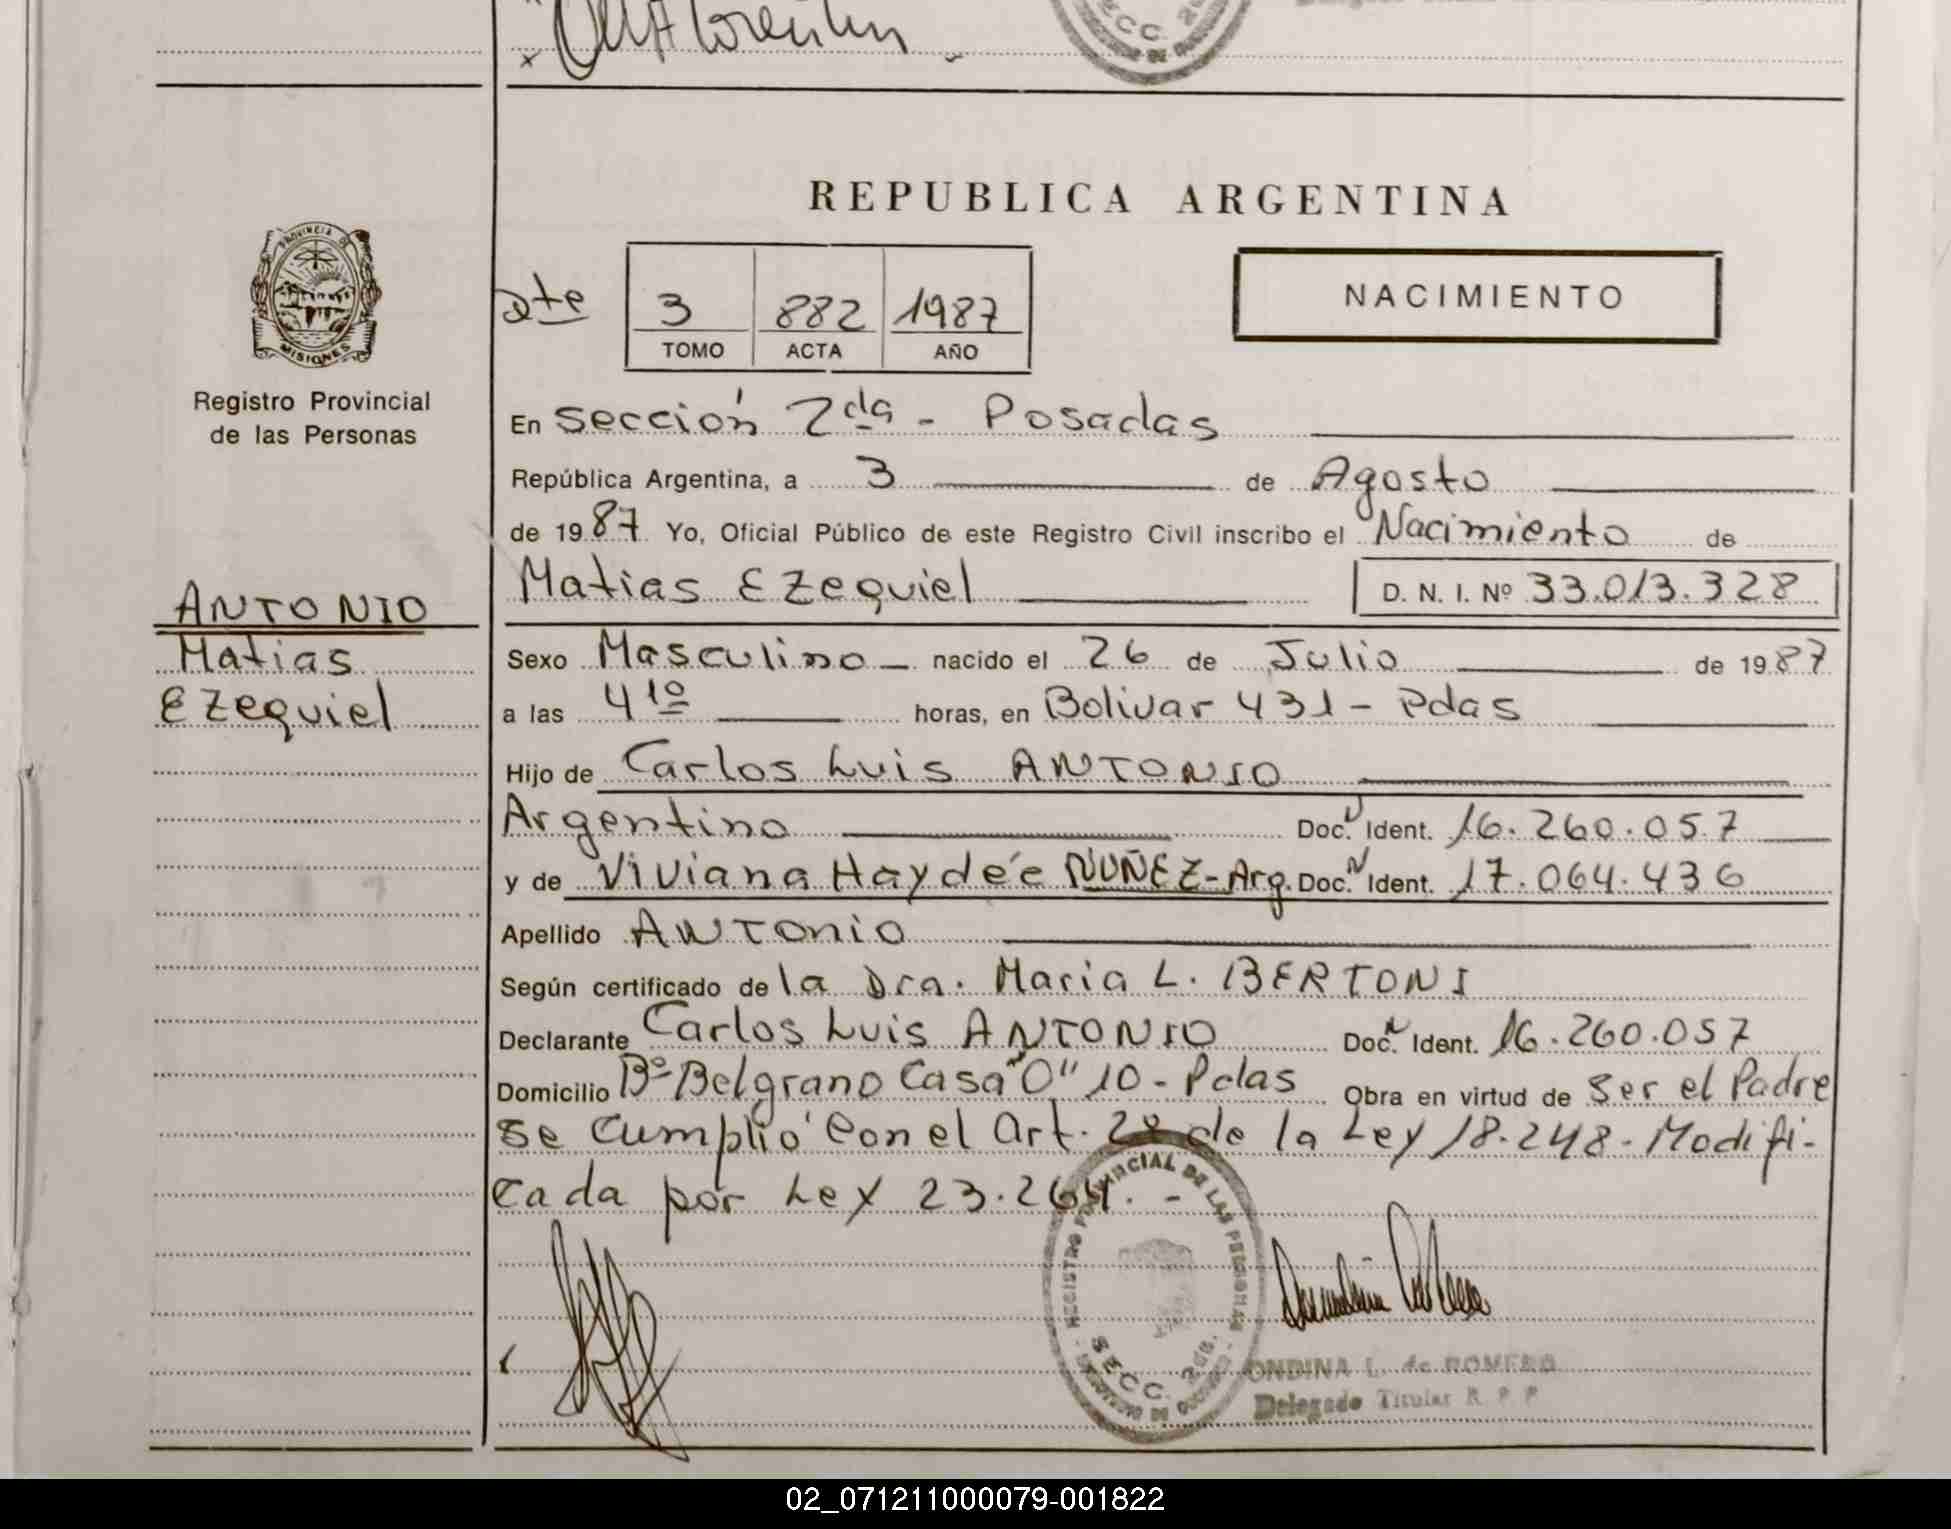 REPUBLICA ARGENTINA
PROVINCIA DE
MISIONES
Registro Provincial
de las Personas
Dte 3 882 1987
TOMO ACTA AÑO
NACIMIENTO
En Sección 2da - Posadas
República Argentina, a 3 de Agosto
de 1987 Yo, Oficial Público de este Registro Civil inscribo el Nacimiento de
Matias Ezequiel D. N. I. Nº 33.013.328
ANTONIO
Matias
Ezequiel
Sexo Masculino nacido el 26 de Julio de 1987
a las 4 10 horas, en Bolivar 431 - Pdas
Hijo de Carlos Luis ANTONIO
Argentino Doc. N Ident. 16.260.057
y de Viviana Haydée NUÑEZ - Arg. Doc. N Ident. 17.064.436
Apellido ANTONIO
Según certificado de la Dra. Maria L. BERTONI
Declarante Carlos Luis ANTONIO Doc. N Ident. 16.260.057
Domicilio Bº Belgrano Casa "O" 10 - Pdas Obra en virtud de Ser el Padre
Se Cumplió Con el Art. 2º de la Ley 18.248 - Modifi-
cada por Ley 23.264. -
REGISTRO PROVINCIAL DE LAS PERSONAS
SECC. 2da.
ONDINA L. de ROMERO
Delegado Titular R. P. P.
02_071211000079-001822